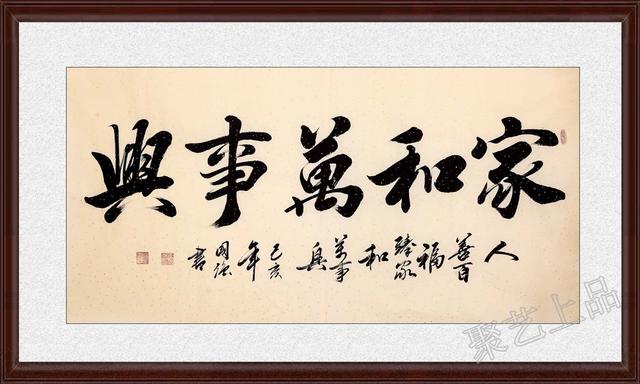 家和萬事興
人善百福臻家和萬事興 己亥年 国强書
聚艺上品